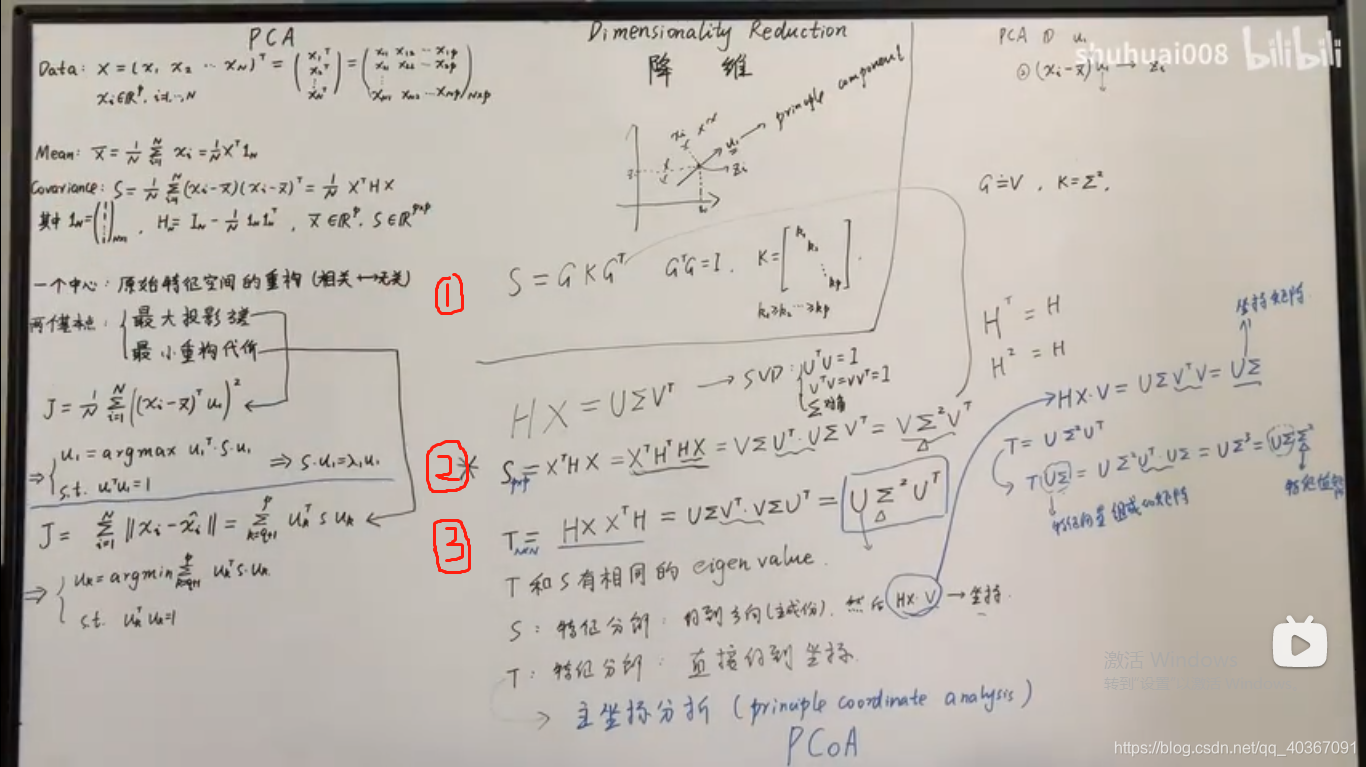 PCA
Data: X = (x₁ x₂ ⋯ x_N)ᵀ = (x₁ᵀ x₂ᵀ ⋮ x_Nᵀ) = (x₁₁ x₁₂ ⋯ x₁p x₂₁ x₂₂ ⋯ x₂p ⋮ x_N1 x_N2 ⋯ x_Np)N×p
xᵢ∈ℝᵖ, i=1,⋯,N
Mean: x̄ = 1/N Σᵢ₌₁ᴺ xᵢ = 1/N Xᵀ1_N
Covariance: S = 1/N Σᵢ₌₁ᴺ (xᵢ-x̄)(xᵢ-x̄)ᵀ = 1/N XᵀHX
其中 1_N = (1 ⋮ 1)N×1 , H_N = I_N - 1/N 1_N 1_Nᵀ , x̄∈ℝᵖ, S∈ℝᵖˣᵖ
一个中心: 原始特征空间的重构 (相关↔无关)
两个基本点: { 最大投影方差
最小重构代价
J = 1/N Σᵢ₌₁ᴺ ((xᵢ-x̄)ᵀu₁)²
⇒ { u₁ = argmax u₁ᵀ·S·u₁ ⇒ S·u₁=λ₁u₁
s.t. u₁ᵀu₁=1
J = Σᵢ₌₁ᴺ ‖xᵢ-x̂ᵢ‖ = Σₖ₌q₊₁ᵖ uₖᵀ S uₖ
⇒ { uₖ = argmin Σₖ₌q₊₁ᵖ uₖᵀ S·uₖ
s.t. uₖᵀuₖ=1
Dimensionality Reduction
降 维
principle component
xᵢ
u₁
zᵢ
①
S = GKGᵀ GᵀG=I. K=[k₁ k₂ ⋱ kp].
k₁≥k₂⋯≥kp
HX = UΣVᵀ → SVD: { UᵀU=I
VᵀV=VVᵀ=I
Σ对角
②
* Sp×p = XᵀHX = XᵀHᵀHX = VΣUᵀ·UΣVᵀ = VΣ²Vᵀ
③
TN×N = HXXᵀH = UΣVᵀ·VΣUᵀ = UΣ²Uᵀ
T和S有相同的 eigen value.
S: 特征分解: 得到方向(主成份). 然后 HX·V → 坐标.
T: 特征分解: 直接得到坐标.
→ 主坐标分析 (principle coordinate analysis)
PCoA
PCA ① u₁
② (xᵢ-x̄)u₁ → zᵢ
G=V , K=Σ².
Hᵀ = H
H² = H
坐标矩阵
HX·V = UΣVᵀV = UΣ
T = UΣ²Uᵀ
TUΣ = UΣ²Uᵀ·UΣ = UΣ³ = UΣΣ²
特征向量组成的矩阵
shuhuai008 bilibili
激活 Windows
https://blog.csdn.net/qq_40367091